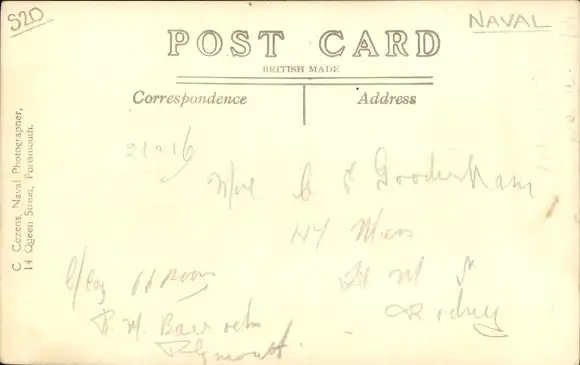 S20
NAVAL
POST CARD
BRITISH MADE
Correspondence
Address
C. Cozens, Naval Photographer,
14 Queen Street, Portsmouth.
21216
C E Gooderham
Mess
H M S
Rodney
Room
R. M. Barracks
Plymouth.